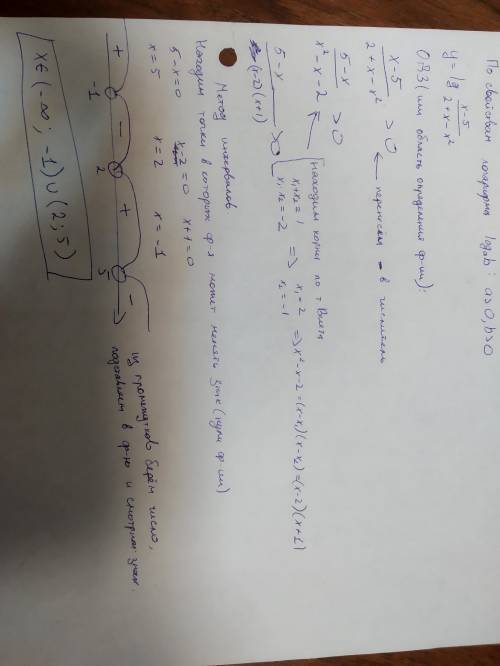 По свойствам логарифма log_a b: a>0, b>0
y = lg (x-5)/(2+x-x²)
ОДЗ (или область определения ф-ии):
(x-5)/(2+x-x²) > 0 ← переносим - в числитель
(5-x)/(x²-x-2) > 0
находим корни по т Виета
x₁+x₂=1
x₁·x₂=-2 => x₁=2 x₂=-1 => x²-x-2=(x-x₁)(x-x₂)=(x-2)(x+1)
(5-x)/((x-2)(x+1)) > 0
Метод интервалов
Находим точки в которых ф-я может менять знак (нули ф-ии)
5-x=0 x-2=0 x+1=0
x=5 x=2 x=-1
+ - + -
-1 2 5
из промежутков берём число,
подставляем в ф-ю и смотрим знак.
x∈(-∞; -1)∪(2;5)